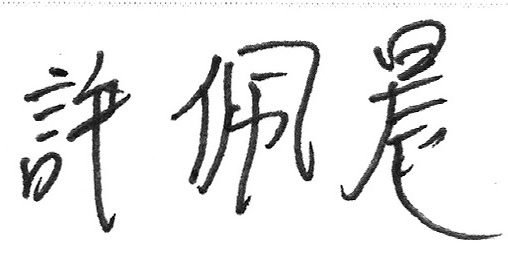 許佩晨